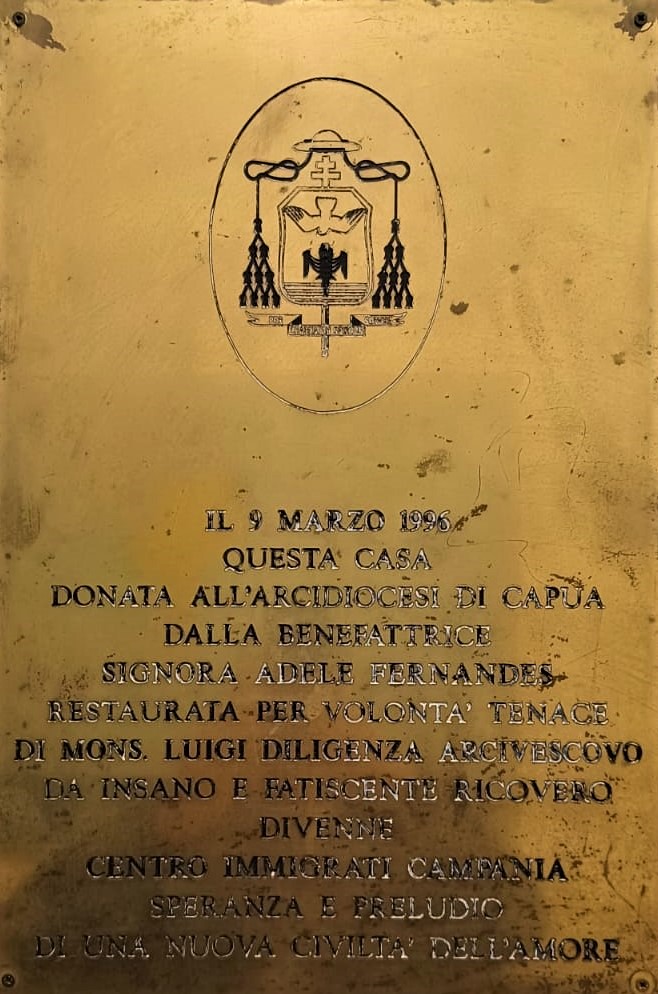 IL 9 MARZO 1996
QUESTA CASA
DONATA ALL'ARCIDIOCESI DI CAPUA
DALLA BENEFATTRICE
SIGNORA ADELE FERNANDES
RESTAURATA PER VOLONTA' TENACE
DI MONS. LUIGI DILIGENZA ARCIVESCOVO
DA INSANO E FATISCENTE RICOVERO
DIVENNE
CENTRO IMMIGRATI CAMPANIA
SPERANZA E PRELUDIO
DI UNA NUOVA CIVILTA' DELL'AMORE